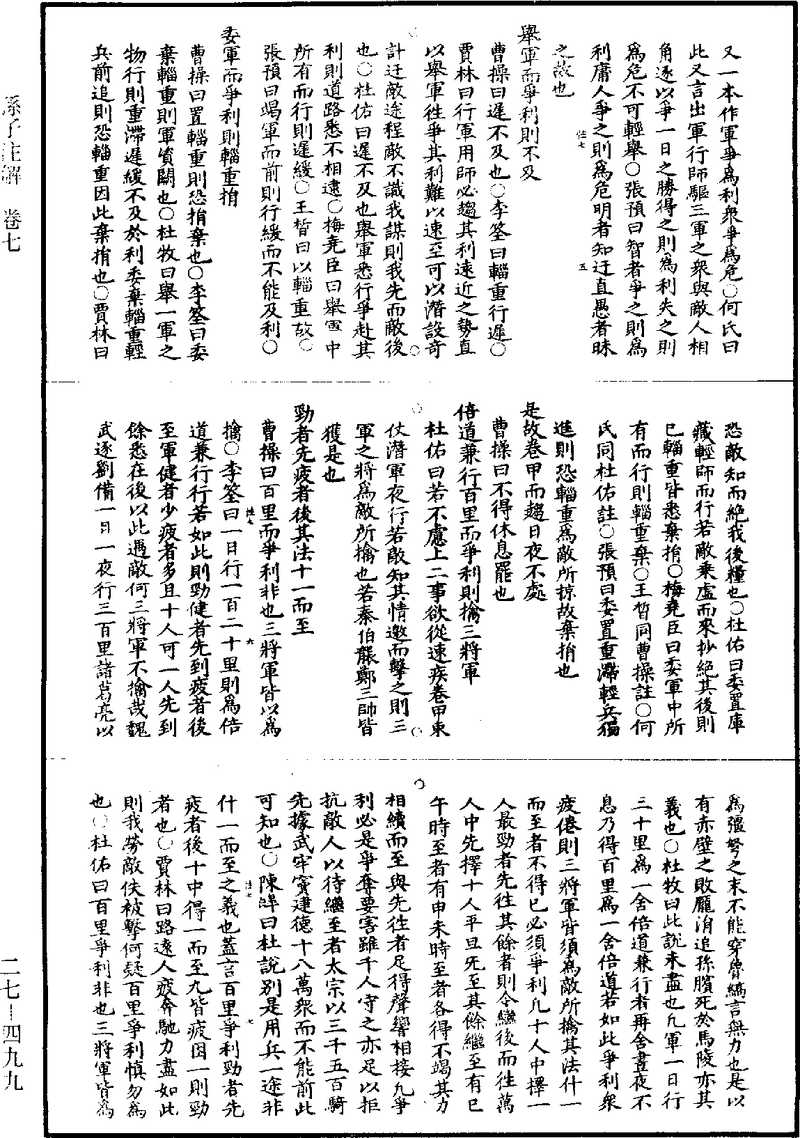 孫子注解　卷七
又一本作軍爭爲利衆爭爲危○何氏曰
此又言出軍行師驅三軍之衆與敵人相
角逐以爭一日之勝得之則爲利失之則
爲危不可輕舉○張預曰智者爭之則爲
利庸人爭之則爲危明者知迂直愚者昧
之故也
舉軍而爭利則不及
曹操曰遲不及也○李筌曰輜重行遲○
賈林曰行軍用師必趨其利遠近之勢直
以舉軍往爭其利難以速至可以潛設奇
計迂敵途程敵不識我謀則我先而敵後
也○杜佑曰遲不及也舉軍悉行爭赴其
利則道路悉不相逮○梅堯臣曰舉軍中
所有而行則遲緩○王晳曰以輜重故○
張預曰竭軍而前則行緩而不能及利○
委軍而爭利則輜重捐
曹操曰置輜重則恐捐棄也○李筌曰委
棄輜重則軍資闕也○杜牧曰舉一軍之
物行則重滯遲緩不及於利委棄輜重輕
兵前追則恐輜重因此棄捐也○賈林曰
恐敵知而絶我後糧也○杜佑曰委置庫
藏輕師而行若敵乘虛而來抄絶其後則
已輜重皆悉棄捐○梅堯臣曰委軍中所
有而行則輜重棄○王晳同曹操註○何
氏同杜佑註○張預曰委置重滯輕兵獨
進則恐輜重爲敵所掠故棄捐也
是故卷甲而趨日夜不處
曹操曰不得休息罷也
倍道兼行百里而爭利則擒三將軍
杜佑曰若不慮上二事欲從速疾卷甲束
仗潛軍夜行若敵知其情邀而擊之則三
軍之將爲敵所擒也若秦伯襲鄭三帥皆
獲是也
勁者先疲者後其法十一而至
曹操曰百里而爭利非也三將軍皆以爲
擒○李筌曰一日行一百二十里則爲倍
道兼行行若如此則勁健者先到疲者後
至軍健者少疲者多且十人可一人先到
餘悉在後以此遇敵何三將軍不擒哉魏
武逐劉備一日一夜行三百里諸葛亮以
爲彊弩之末不能穿魯縞言無力也是以
有赤壁之敗龐涓追孫臏死於馬陵亦其
義也○杜牧曰此說未盡也凡軍一日行
三十里爲一舍倍道兼行者再舍晝夜不
息乃得百里爲一舍倍道若如此爭利衆
疲倦則三將軍皆須爲敵所擒其法什一
而至者不得已必須爭利凡十人中擇一
人最勁者先往其餘者則令繼後而往萬
人中先擇十人平旦先至其餘繼至有巳
午時至者有申未時至者各得不竭其力
相續而至與先往者足得聲響相接凡爭
利必是爭奪要害雖千人守之亦足以拒
抗敵人以待繼至者太宗以三千五百騎
先據武牢竇建德十八萬衆而不能前此
可知也○陳皡曰杜說別是用兵一途非
什一而至之義也蓋言百里爭利勁者先
疲者後十中得一而至九皆疲困一則勁
者也○賈林曰路遠人疲奔馳力盡如此
則我勞敵佚被擊何疑百里爭利慎勿爲
也○杜佑曰百里爭利非也三將軍皆爲
二七－四九九